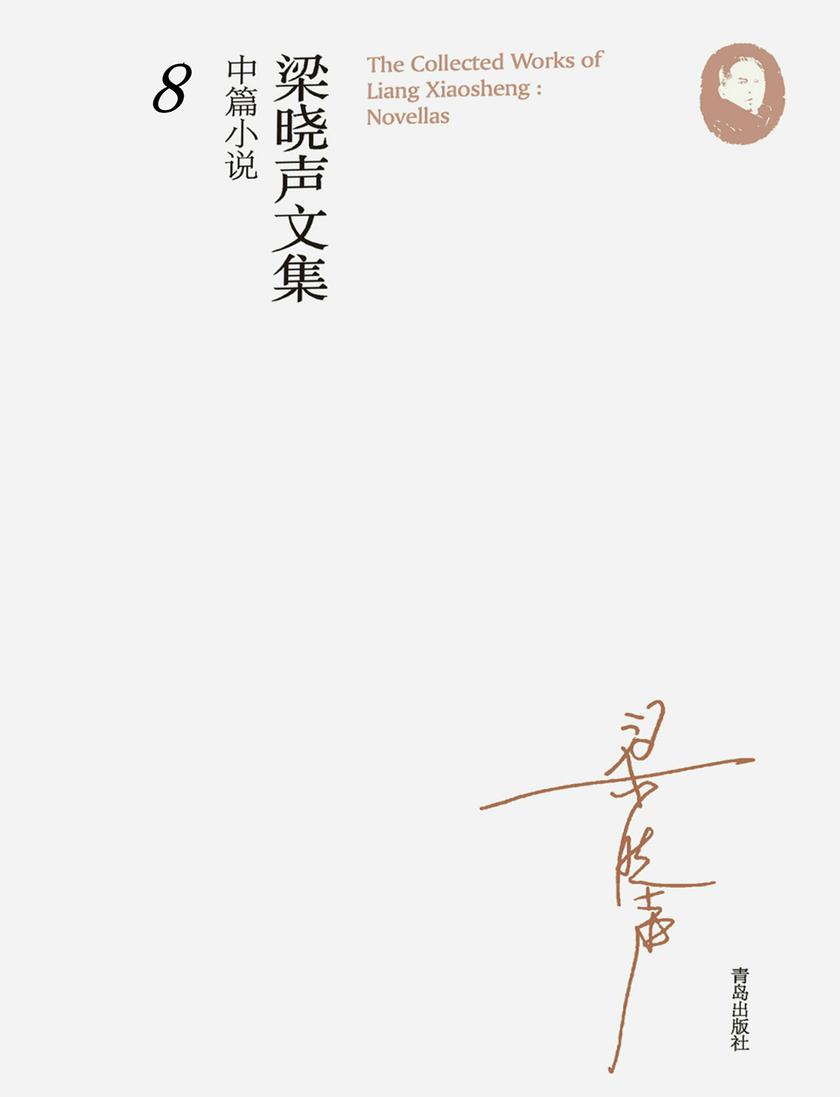 8
中篇小说
梁晓声文集
The Collected Works of
Liang Xiaosheng :
Novellas
梁晓声
青岛出版社